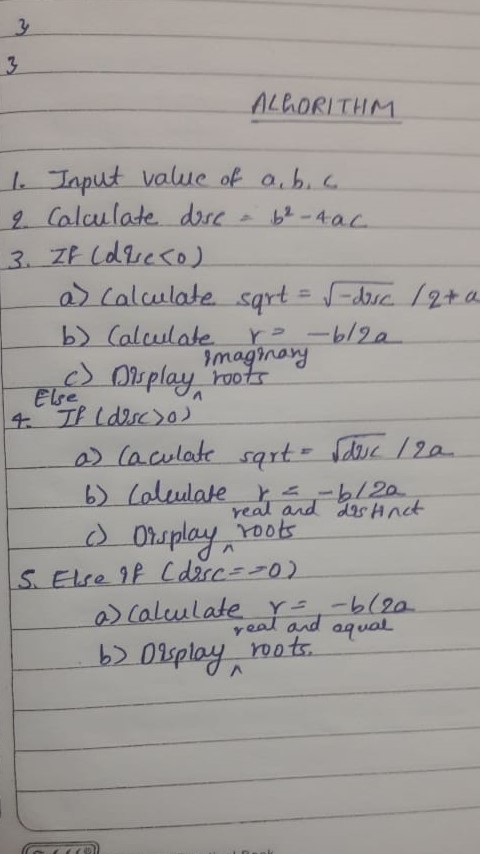 3
3
ALGORITHM
1. Input value of a, b, c
2. Calculate disc = b² - 4ac
3. If (disc<0)
a) Calculate sqrt = √-disc / 2*a
b) Calculate r = -b/2a
c) Display ^ imaginary roots
4. Else If (disc>0)
a) Caculate sqrt = √disc / 2a
b) Calculate r = -b/2a
c) Display ^ real and distinct roots
5. Else If (disc==0)
a) Calculate r = -b/2a
b) Display ^ real and equal roots.